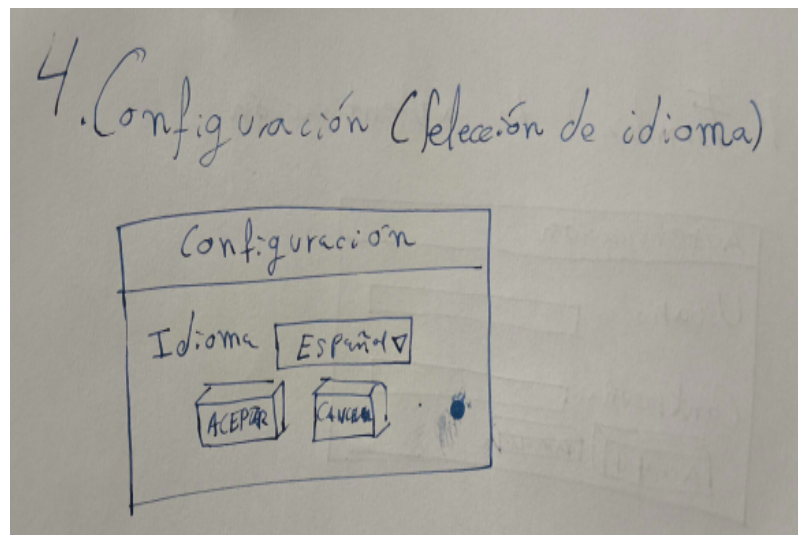 4. Configuración (Selección de idioma)
Configuración
Idioma Español
ACEPTAR CANCELAR